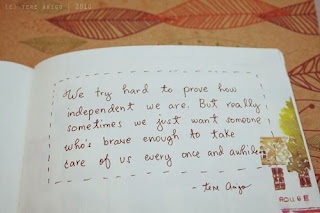 (c) tene amigo | 2010
We try hard to prove how
independent we are. But really
sometimes we just want someone
who's brave enough to take
care of us every once and awhile
- tene Amgo